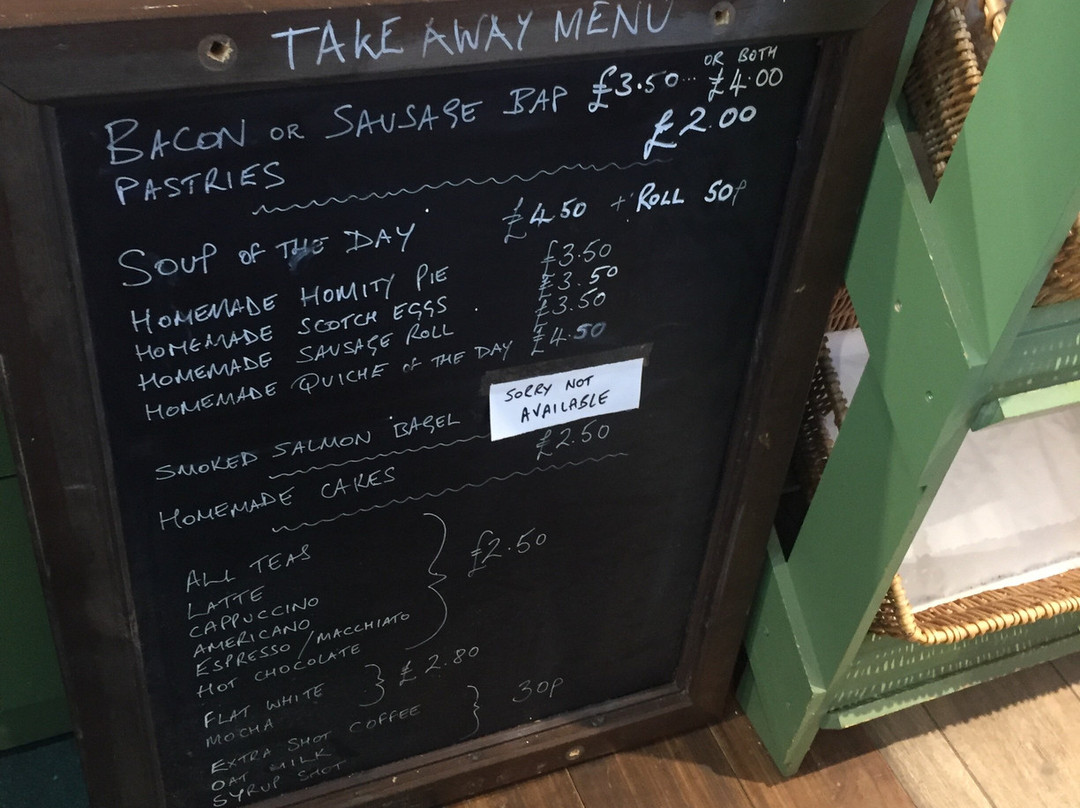 TAKE AWAY MENU
OR BOTH
BACON OR SAUSAGE BAP £3.50... £4.00
PASTRIES £2.00
SOUP OF THE DAY £4.50 + ROLL 50P
HOMEMADE HOMITY PIE £3.50
HOMEMADE SCOTCH EGGS £3.50
HOMEMADE SAUSAGE ROLL £3.50
HOMEMADE QUICHE OF THE DAY £4.50
SORRY NOT
AVAILABLE
SMOKED SALMON BAGEL
HOMEMADE CAKES £2.50
ALL TEAS
LATTE
CAPPUCCINO
AMERICANO
ESPRESSO/MACCHIATO
HOT CHOCOLATE
£2.50
FLAT WHITE
MOCHA
£2.80
EXTRA SHOT COFFEE
OAT MILK
SYRUP SHOT
30P